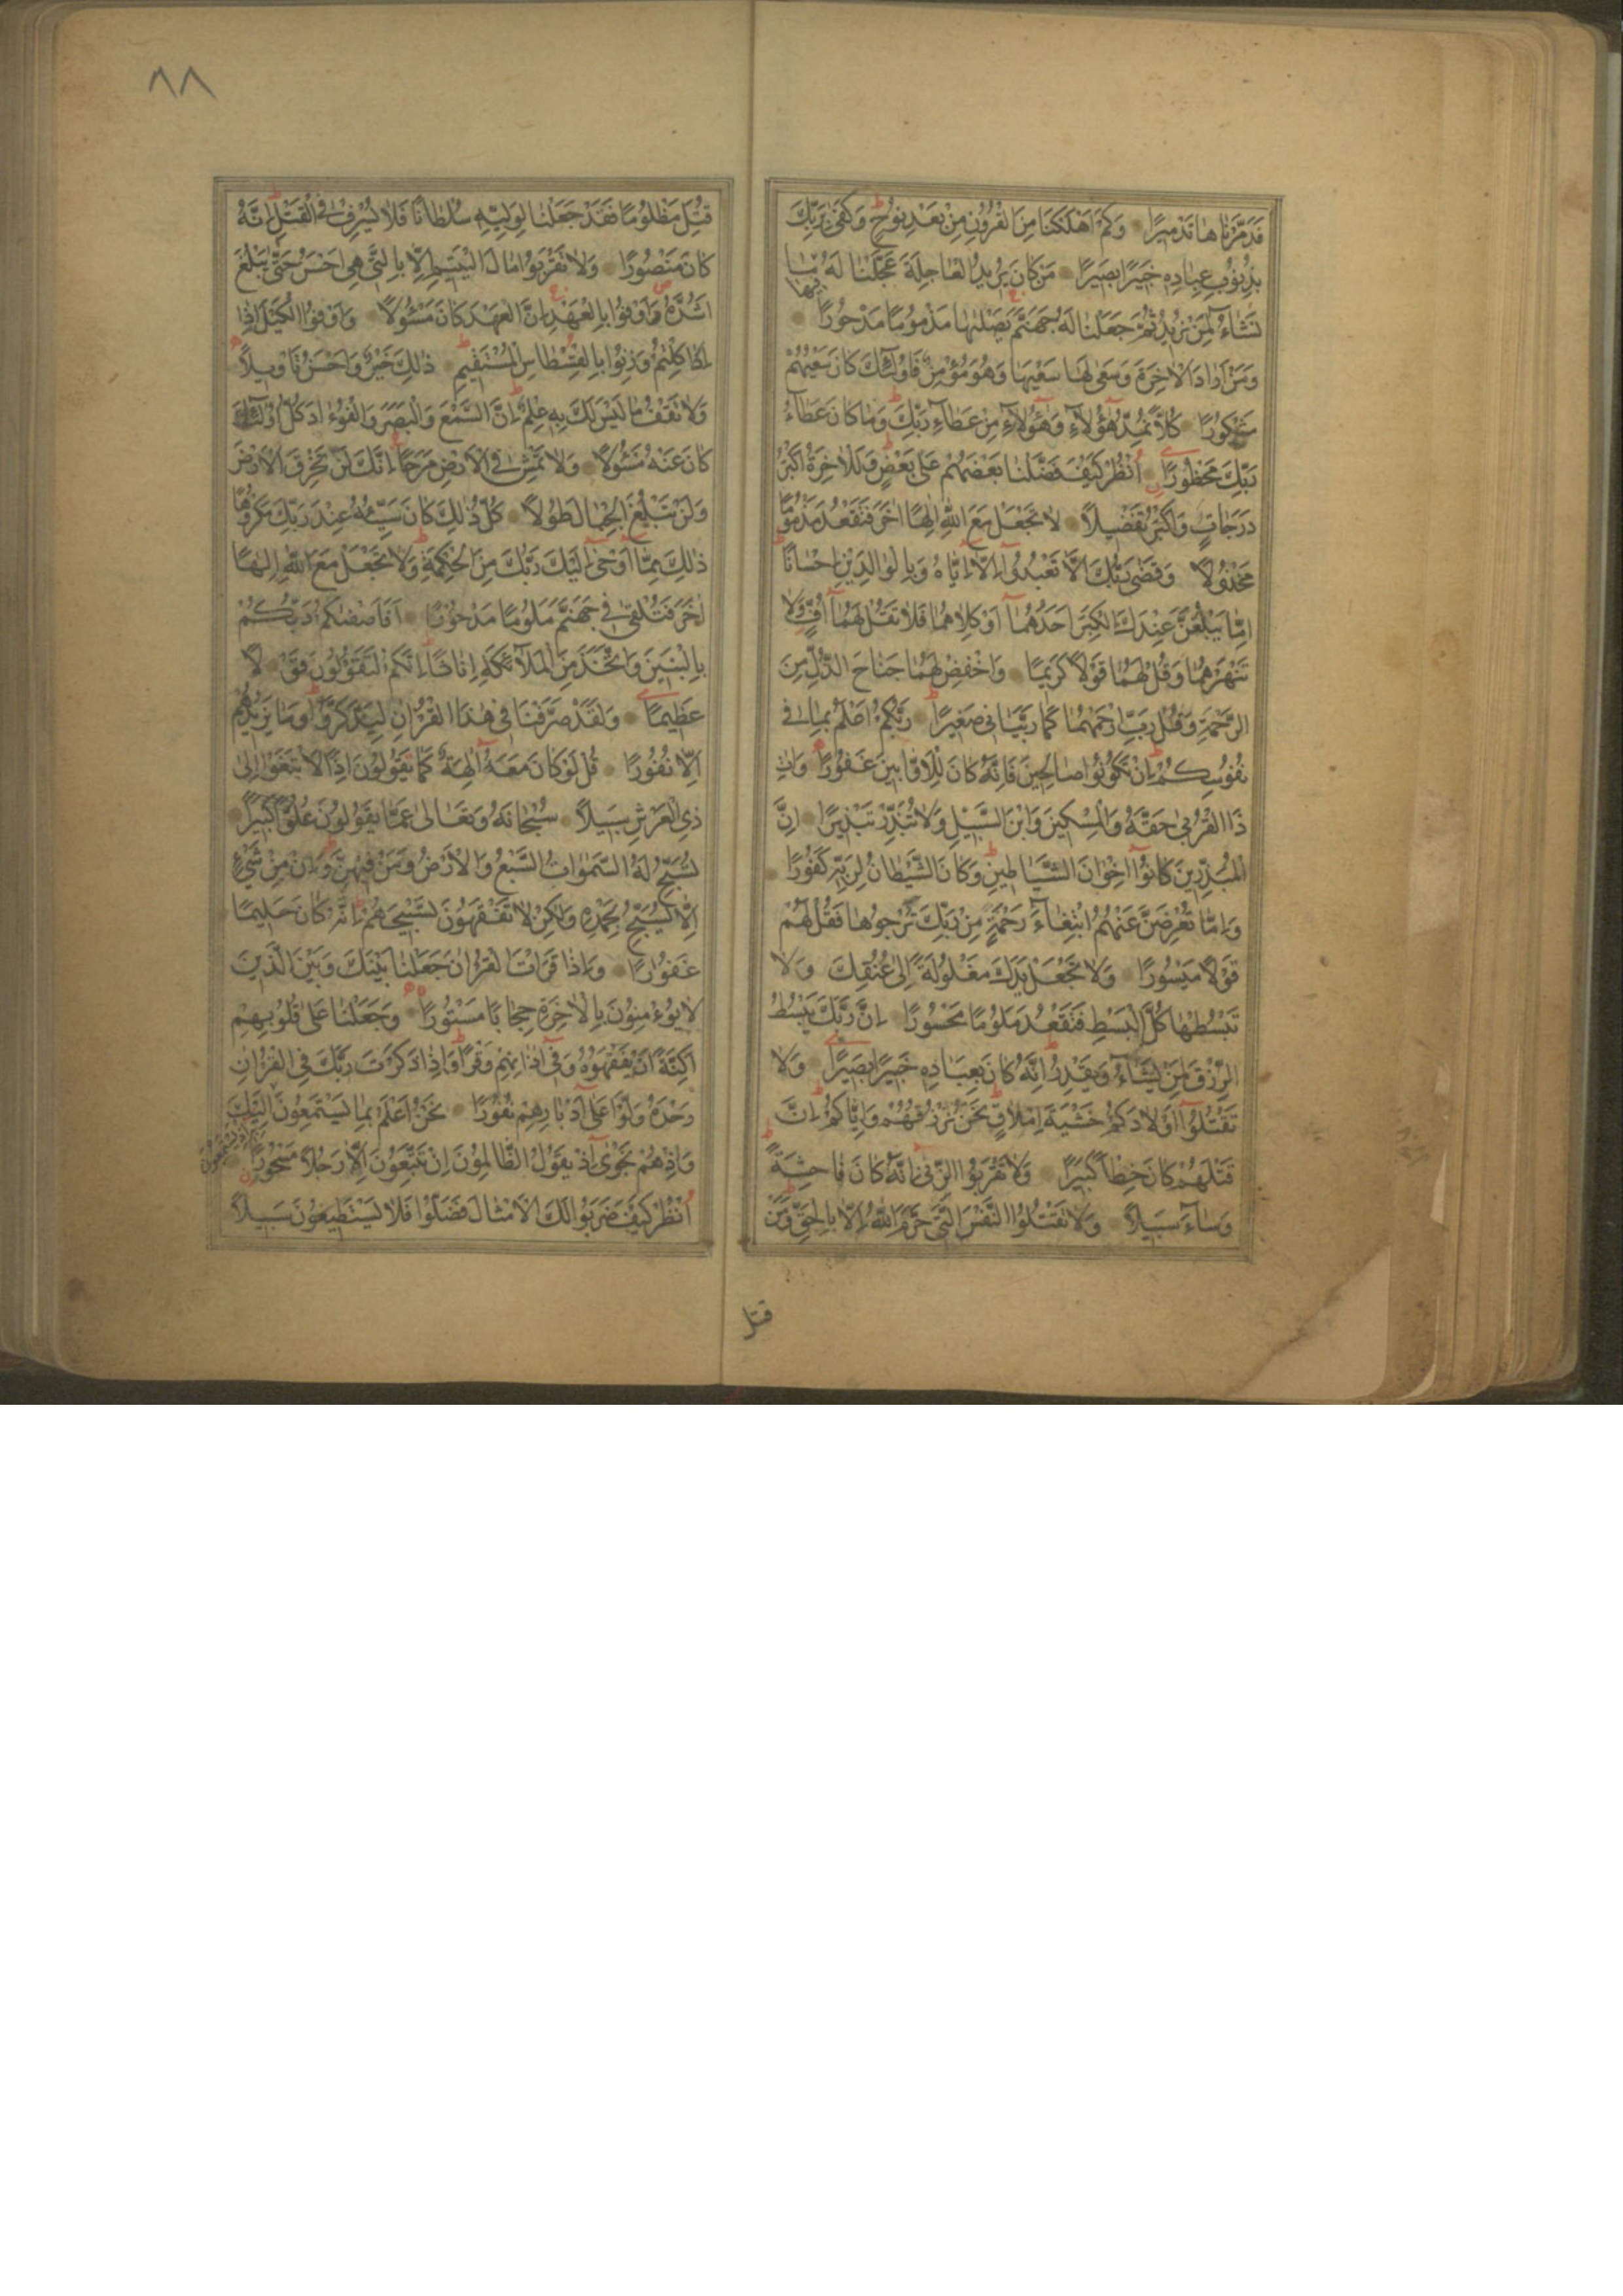 فَدَمَّرْنَاهَا تَدْمِيرًا وَكَمْ اَهْلَكْنَا مِنَ الْقُرُونِ مِنْ بَعْدِ نُوحٍ وَكَفٰى بِرَبِّكَ
بِذُنُوبِ عِبَادِهِ خَبِيرًا بَصِيرًا مَنْ كَانَ يُرِيدُ الْعَاجِلَةَ عَجَّلْنَا لَهُ فِيهَا مَا
نَشَاءُ لِمَنْ نُرِيدُ ثُمَّ جَعَلْنَا لَهُ جَهَنَّمَ يَصْلٰيهَا مَذْمُومًا مَدْحُورًا
وَمَنْ اَرَادَ الْاٰخِرَةَ وَسَعٰى لَهَا سَعْيَهَا وَهُوَ مُؤْمِنٌ فَاُولٰئِكَ كَانَ سَعْيُهُمْ
مَشْكُورًا كُلًّا نُمِدُّ هٰؤُلَاءِ وَهٰؤُلَاءِ مِنْ عَطَاءِ رَبِّكَ وَمَا كَانَ عَطَاءُ
رَبِّكَ مَحْظُورًا اُنْظُرْ كَيْفَ فَضَّلْنَا بَعْضَهُمْ عَلٰى بَعْضٍ وَلَلْاٰخِرَةُ اَكْبَرُ
دَرَجَاتٍ وَاَكْبَرُ تَفْضِيلًا لَا تَجْعَلْ مَعَ اللّٰهِ اِلٰهًا اٰخَرَ فَتَقْعُدَ مَذْمُومًا
مَخْذُولًا وَقَضٰى رَبُّكَ اَلَّا تَعْبُدُوا اِلَّا اِيَّاهُ وَبِالْوَالِدَيْنِ اِحْسَانًا
اِمَّا يَبْلُغَنَّ عِنْدَكَ الْكِبَرَ اَحَدُهُمَا اَوْ كِلَاهُمَا فَلَا تَقُلْ لَهُمَا اُفٍّ وَلَا
تَنْهَرْهُمَا وَقُلْ لَهُمَا قَوْلًا كَرِيمًا وَاخْفِضْ لَهُمَا جَنَاحَ الذُّلِّ مِنَ
الرَّحْمَةِ وَقُلْ رَبِّ ارْحَمْهُمَا كَمَا رَبَّيَانِى صَغِيرًا رَبُّكُمْ اَعْلَمُ بِمَا فِى
نُفُوسِكُمْ اِنْ تَكُونُوا صَالِحِينَ فَاِنَّهُ كَانَ لِلْاَوَّابِينَ غَفُورًا وَاٰتِ
ذَا الْقُرْبٰى حَقَّهُ وَالْمِسْكِينَ وَابْنَ السَّبِيلِ وَلَا تُبَذِّرْ تَبْذِيرًا اِنَّ
الْمُبَذِّرِينَ كَانُوا اِخْوَانَ الشَّيَاطِينِ وَكَانَ الشَّيْطَانُ لِرَبِّهِ كَفُورًا
وَاِمَّا تُعْرِضَنَّ عَنْهُمُ ابْتِغَاءَ رَحْمَةٍ مِنْ رَبِّكَ تَرْجُوهَا فَقُلْ لَهُمْ
قَوْلًا مَيْسُورًا وَلَا تَجْعَلْ يَدَكَ مَغْلُولَةً اِلٰى عُنُقِكَ وَلَا
تَبْسُطْهَا كُلَّ الْبَسْطِ فَتَقْعُدَ مَلُومًا مَحْسُورًا اِنَّ رَبَّكَ يَبْسُطُ
الرِّزْقَ لِمَنْ يَشَاءُ وَيَقْدِرُ اِنَّهُ كَانَ بِعِبَادِهِ خَبِيرًا بَصِيرًا وَلَا
تَقْتُلُوا اَوْلَادَكُمْ خَشْيَةَ اِمْلَاقٍ نَحْنُ نَرْزُقُهُمْ وَاِيَّاكُمْ اِنَّ
قَتْلَهُمْ كَانَ خِطْاً كَبِيرًا وَلَا تَقْرَبُوا الزِّنٰى اِنَّهُ كَانَ فَاحِشَةً
وَسَاءَ سَبِيلًا وَلَا تَقْتُلُوا النَّفْسَ الَّتِى حَرَّمَ اللّٰهُ اِلَّا بِالْحَقِّ وَمَنْ
قتل
٨٨
قُتِلَ مَظْلُومًا فَقَدْ جَعَلْنَا لِوَلِيِّهِ سُلْطَانًا فَلَا يُسْرِفْ فِى الْقَتْلِ اِنَّهُ
كَانَ مَنْصُورًا وَلَا تَقْرَبُوا مَالَ الْيَتِيمِ اِلَّا بِالَّتِى هِىَ اَحْسَنُ حَتّٰى يَبْلُغَ
اَشُدَّهُ وَاَوْفُوا بِالْعَهْدِ اِنَّ الْعَهْدَ كَانَ مَسْئُولًا وَاَوْفُوا الْكَيْلَ اِذَا
اِذَا كِلْتُمْ وَزِنُوا بِالْقِسْطَاسِ الْمُسْتَقِيمِ ذٰلِكَ خَيْرٌ وَاَحْسَنُ تَاْوِيلًا
وَلَا تَقْفُ مَا لَيْسَ لَكَ بِهِ عِلْمٌ اِنَّ السَّمْعَ وَالْبَصَرَ وَالْفُؤَادَ كُلُّ اُولٰئِكَ
كَانَ عَنْهُ مَسْئُولًا وَلَا تَمْشِ فِى الْاَرْضِ مَرَحًا اِنَّكَ لَنْ تَخْرِقَ الْاَرْضَ
وَلَنْ تَبْلُغَ الْجِبَالَ طُولًا كُلُّ ذٰلِكَ كَانَ سَيِّئُهُ عِنْدَ رَبِّكَ مَكْرُوهًا
ذٰلِكَ مِمَّا اَوْحٰى اِلَيْكَ رَبُّكَ مِنَ الْحِكْمَةِ وَلَا تَجْعَلْ مَعَ اللّٰهِ اِلٰهًا
اٰخَرَ فَتُلْقٰى فِى جَهَنَّمَ مَلُومًا مَدْحُورًا اَفَاَصْفٰىكُمْ رَبُّكُمْ
بِالْبَنِينَ وَاتَّخَذَ مِنَ الْمَلٰئِكَةِ اِنَاثًا اِنَّكُمْ لَتَقُولُونَ قَوْلًا
عَظِيمًا وَلَقَدْ صَرَّفْنَا فِى هٰذَا الْقُرْاٰنِ لِيَذَّكَّرُوا وَمَا يَزِيدُهُمْ
اِلَّا نُفُورًا قُلْ لَوْ كَانَ مَعَهُ اٰلِهَةٌ كَمَا يَقُولُونَ اِذًا لَابْتَغَوْا اِلٰى
ذِى الْعَرْشِ سَبِيلًا سُبْحَانَهُ وَتَعَالٰى عَمَّا يَقُولُونَ عُلُوًّا كَبِيرًا
تُسَبِّحُ لَهُ السَّمٰوَاتُ السَّبْعُ وَالْاَرْضُ وَمَنْ فِيهِنَّ وَاِنْ مِنْ شَيْءٍ
اِلَّا يُسَبِّحُ بِحَمْدِهِ وَلٰكِنْ لَا تَفْقَهُونَ تَسْبِيحَهُمْ اِنَّهُ كَانَ حَلِيمًا
غَفُورًا وَاِذَا قَرَاْتَ الْقُرْاٰنَ جَعَلْنَا بَيْنَكَ وَبَيْنَ الَّذِينَ
لَا يُؤْمِنُونَ بِالْاٰخِرَةِ حِجَابًا مَسْتُورًا وَجَعَلْنَا عَلٰى قُلُوبِهِمْ
اَكِنَّةً اَنْ يَفْقَهُوهُ وَفِى اٰذَانِهِمْ وَقْرًا وَاِذَا ذَكَرْتَ رَبَّكَ فِى الْقُرْاٰنِ
وَحْدَهُ وَلَّوْا عَلٰى اَدْبَارِهِمْ نُفُورًا نَحْنُ اَعْلَمُ بِمَا يَسْتَمِعُونَ اِلَيْكَ
وَاِذْ هُمْ نَجْوٰى اِذْ يَقُولُ الظَّالِمُونَ اِنْ تَتَّبِعُونَ اِلَّا رَجُلًا مَسْحُورًا
اُنْظُرْ كَيْفَ ضَرَبُوا لَكَ الْاَمْثَالَ فَضَلُّوا فَلَا يَسْتَطِيعُونَ سَبِيلًا